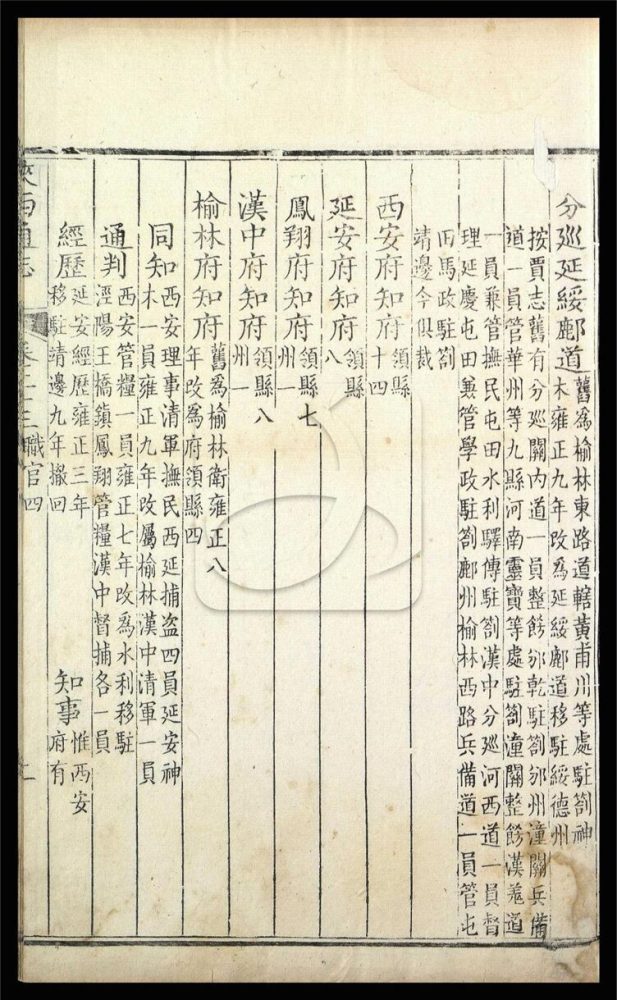 分巡延綏鄜道
舊爲榆林東路道轄黃甫川等處駐劄神
木雍正九年改爲延綏鄜道移駐綏德州
按賈志舊有分巡關内道一員整飭邠乾駐劄邠州潼關兵備
道一員管華州等九縣河南靈寶等處駐劄潼關整飭漢羗道
一員兼管撫民屯田水利驛傳駐劄漢中分巡河西道一員督
理延慶屯田兼管學政駐劄鄜州榆林西路兵備道一員管屯
田馬政駐劄
靖邊今俱裁
西安府知府
領縣
十四
延安府知府
領縣
八
鳳翔府知府
領縣七
州一
漢中府知府
領縣八
州一
榆林府知府
舊爲榆林衛雍正八
年改爲府領縣四
同知
西安理事清軍撫民西延捕盗四員延安神
木一員雍正九年改屬榆林漢中清軍一員
通判
西安管糧一員雍正七年改爲水利移駐
涇陽王橋鎮鳳翔管糧漢中督捕各一員
經歷
延安經歷雍正三年
移駐靖邊九年撤回
知事
惟西安
府有
陜西通志
卷二十三
職官四